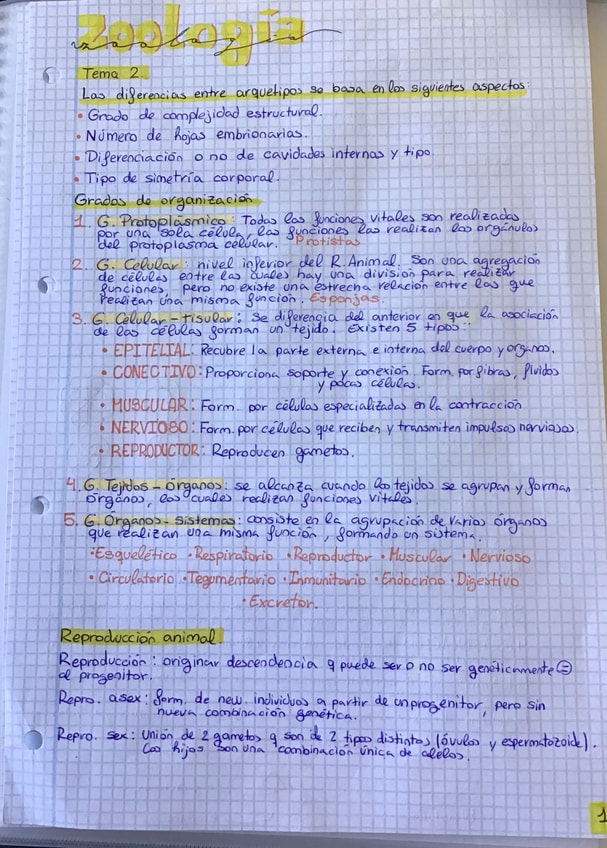 Zoología
zoología
Tema 2.
Las diferencias entre arquetipos se basa en los siguientes aspectos:
• Grado de complejidad estructural.
• Número de hojas embrionarias.
• Diferenciación o no de cavidades internas y tipo.
• Tipo de simetría corporal.
Grados de organización
1. G. Protoplásmico: Todas las funciones vitales son realizadas
por una sola célula, las funciones las realizan los orgánulos
del protoplasma celular. Protistas
2. G. Celular: nivel inferior del R. Animal. Son una agregación
de células entre las cuales hay una división para realizar
funciones, pero no existe una estrecha relación entre las que
realizan una misma función. Esponjas.
3. G. Celular-tisular: Se diferencia del anterior en que la asociación
de las células forman un tejido. Existen 5 tipos:
• EPITELIAL: Recubre la parte externa e interna del cuerpo y organos.
• CONECTIVO: Proporciona soporte y conexión. Form. por fibras, fluidos
y pocas células.
• MUSCULAR: Form. por células especializadas en la contracción
• NERVIOSO: Form. por células que reciben y transmiten impulsos nerviosos.
• REPRODUCTOR: Reproducen gametos.
4. G. Tejidos-órganos: se alcanza cuando los tejidos se agrupan y forman
órganos, los cuales realizan funciones vitales.
5. G. Órganos-Sistemas: consiste en la agrupación de varios órganos
que realizan una misma función, formando un sistema.
• Esquelético • Respiratorio • Reproductor • Muscular • Nervioso
• Circulatorio • Tegumentario • Inmunitario • Endocrino • Digestivo
• Excretor.
Reproducción animal.
Reproducción: originar descendencia q puede ser o no ser genéticamente =
al progenitor.
Repro. asex: form. de new. individuos a partir de un progenitor, pero sin
nueva combinación genética.
Repro. sex: Unión de 2 gametos q son de 2 tipos distintos (óvulos y espermatozoide).
Los hijos son una combinación única de alelos.
1